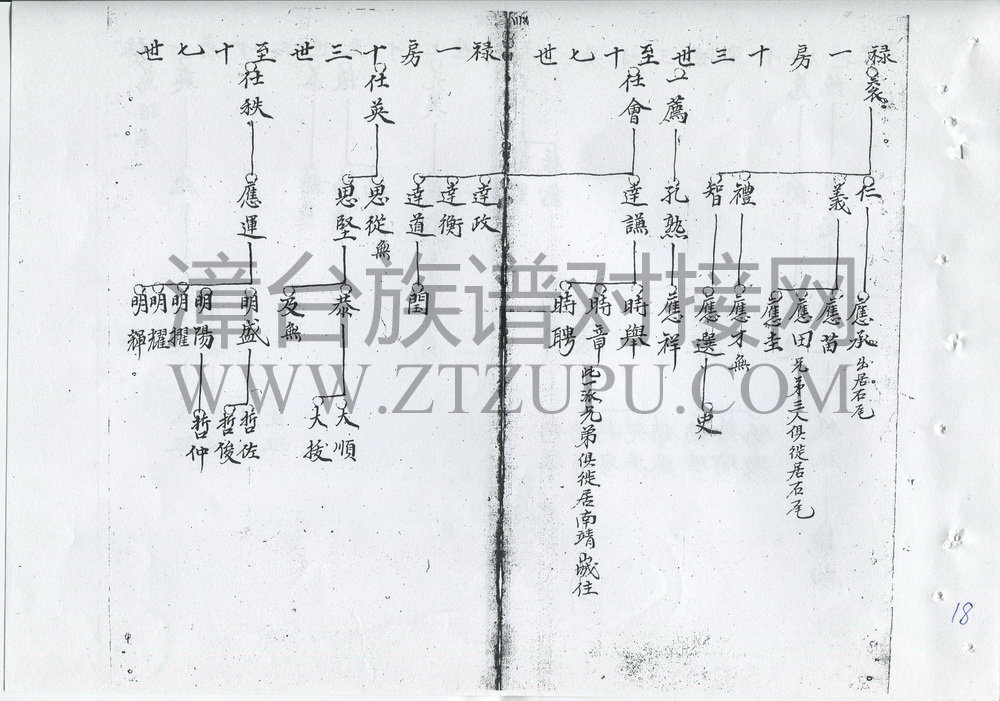 禄一房十三世至十七世
袞
仁
義
禮
智
應承 出居石尾
應苗
應田 兄弟三人俱徙居石尾
應圭
應才 無
應選
史
一薦
孔熟
應祥
任會
達謙
達政
達衡
達道
時舉
時章 此派兄弟俱徙居南靖
時聘
閏
禄一房十三世至十七世
任英
思從 無
思堅
恭
及 無
大順
大援
任秩
應運
明盛
明陽
明擢
明耀
明輝
哲佐
哲俊
哲仲
漳台族谱对接网
WWW.ZTZUPU.COM
18